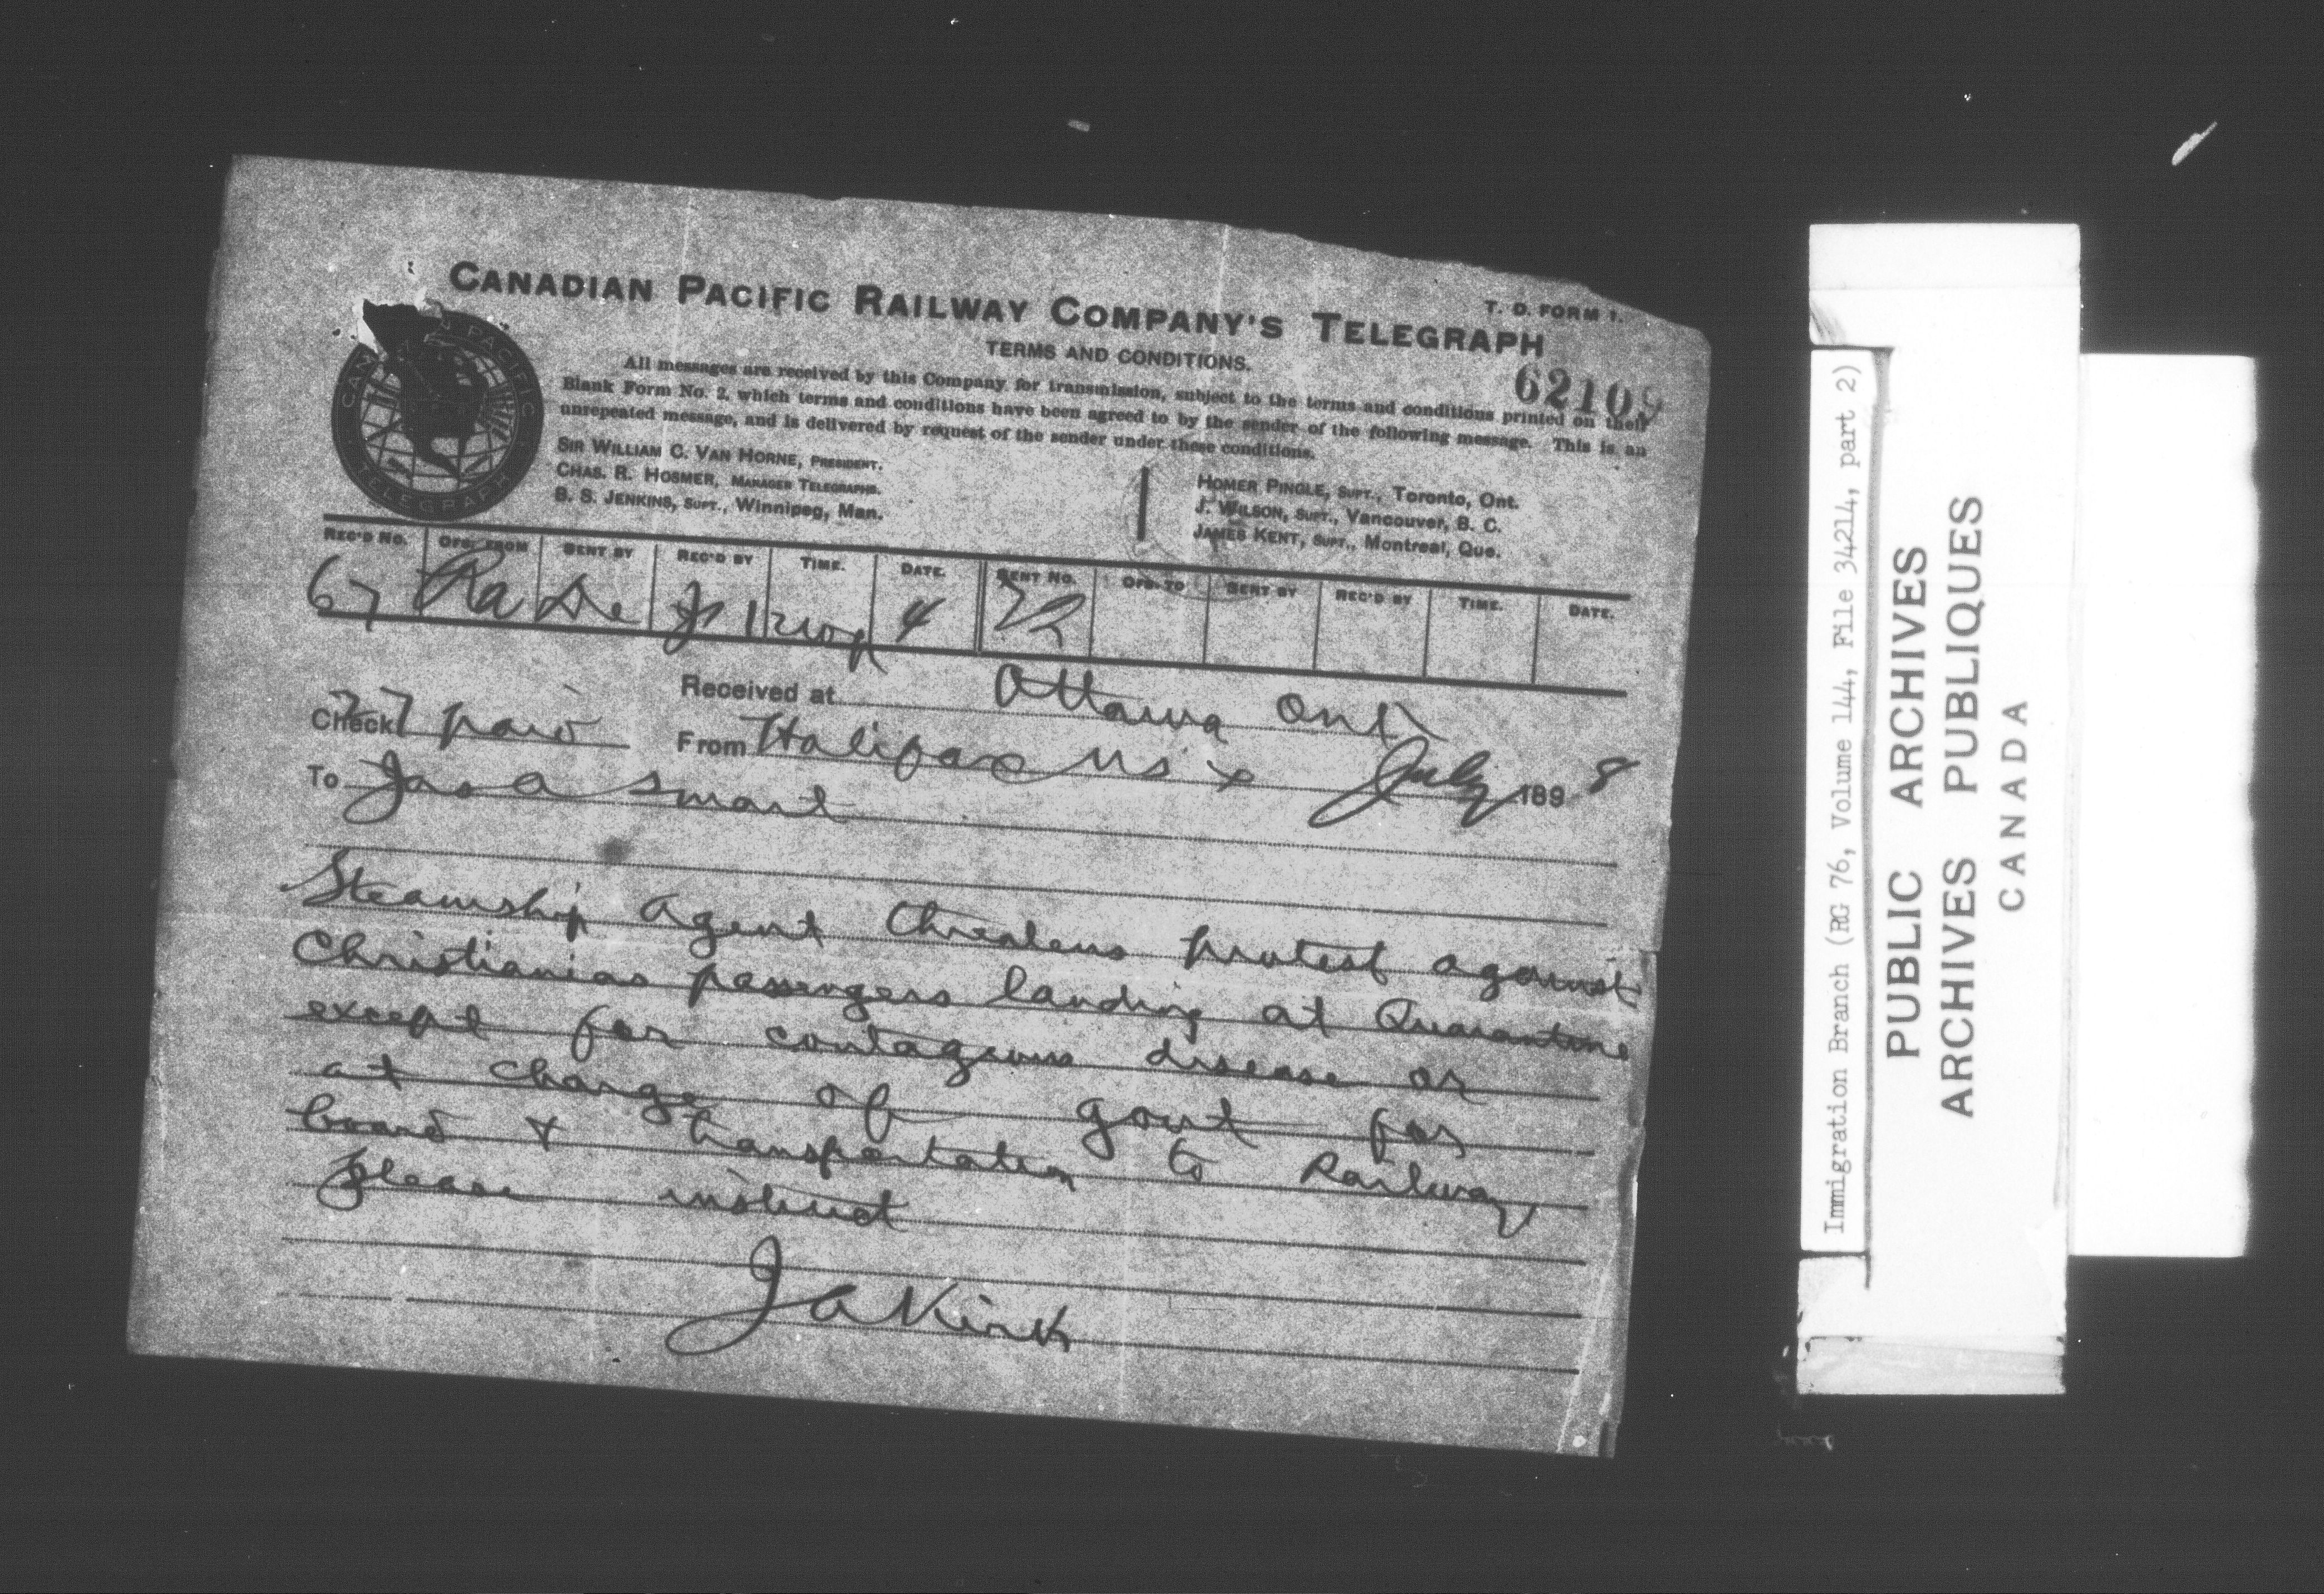 T. D. FORM 1.
CANADIAN PACIFIC RAILWAY COMPANY'S TELEGRAPH
TERMS AND CONDITIONS.
62109
All messages are received by this Company for transmission, subject to the terms and conditions printed on their
Blank Form No. 2, which terms and conditions have been agreed to by the sender of the following message. This is an
unrepeated message, and is delivered by request of the sender under these conditions.
SIR WILLIAM C. VAN HORNE, PRESIDENT.
CHAS. R. HOSMER, MANAGER TELEGRAPHS.
B. S. JENKINS, SUPT., Winnipeg, Man.
HOMER PINGLE, SUPT., Toronto, Ont.
J. WILSON, SUPT., Vancouver, B. C.
JAMES KENT, SUPT., Montreal, Que.
CANADIAN PACIFIC
TELEGRAPH
REC'D NO. OFG. FROM SENT BY REC'D BY TIME. DATE. SENT NO. OFG. TO SENT BY REC'D BY TIME. DATE.
67 Ra De 4
Received at Ottawa Ont
Check 27 paid From Halifax NS July 1898
To Jas A Smart
Steamship agent threatens protest against
Christianias passengers landing at Quarantine
except for contageous disease or
at charge of govt for
board & transportation to Railway
please instruct
J A Kirk
Immigration Branch (RG 76, Volume 144, File 34214, part 2)
PUBLIC ARCHIVES
ARCHIVES PUBLIQUES
CANADA